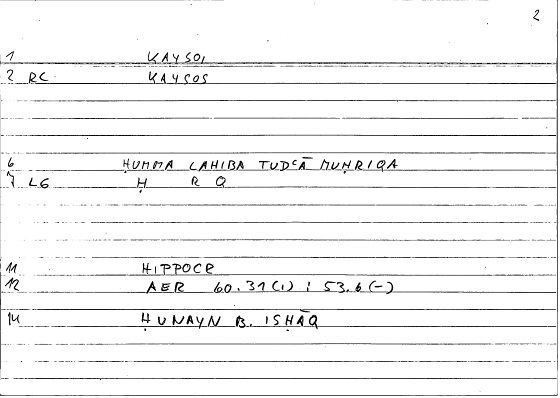 2
1 KAYSOI
2 RC KAYSOS
6 ḤUMMA LAHIBA TUDʿĀ MUḤRIQA
7 LG Ḥ R Q
11 HIPPOCR
12 AER 60.31(1) : 53.6(-)
14 ḤUNAYN B. ISḤĀQ